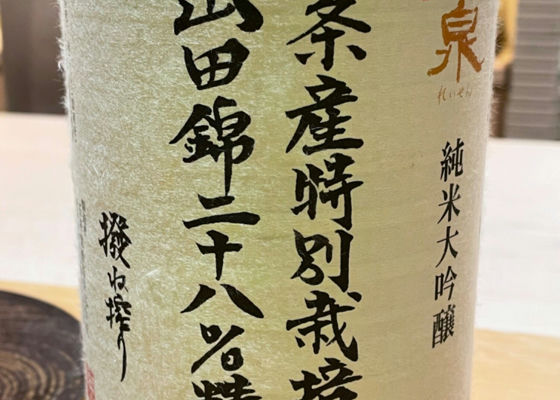 泉
れいせん
純米大吟醸
条産特別栽培
山田錦二十八%精
撥ね搾り